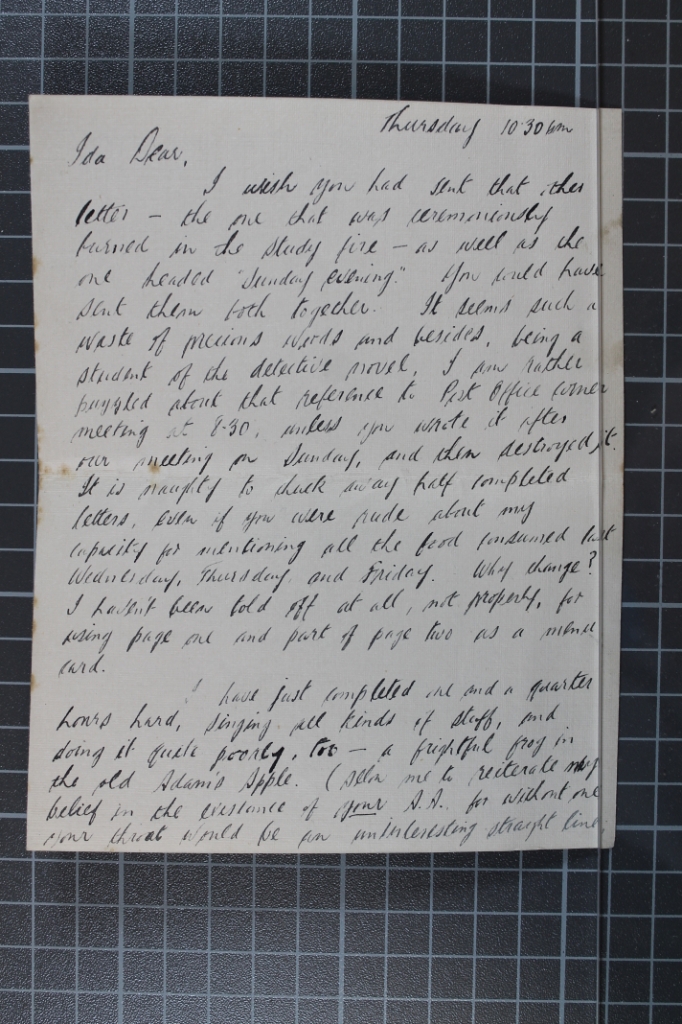 Thursday 10.30 am
Ida Dear,
I wish you had sent that other
letter – the one that was ceremoniously
burned in the study fire – as well as the
one headed "Sunday evening." You could have
sent them both together. It seems such a
waste of precious words and besides, being a
student of the detective novel, I am rather
puzzled about that reference to Post Office corner
meeting at 8.30, unless you wrote it after
our meeting on Sunday, and then destroyed it.
It is naughty to chuck away half completed
letters, even if you were rude about my
capacity for mentioning all the food consumed last
Wednesday, Thursday, and Friday. Why change?
I haven't been told off at all, not properly, for
using page one and part of page two as a menu
card.
I have just completed one and a quarter
hours hard, singing all kinds of stuff, and
doing it quite poorly, too – a frightful frog in
the old Adam's Apple. (Allow me to reiterate my
belief in the existance of your A.A. for without one
your throat would be an uninteresting straight line,